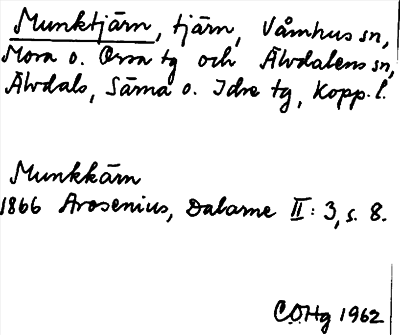 Munktjärn, tjärn, Våmhus sn,
Mora o. Orsa tg och Älvdalens sn,
Älvdals, Särna o. Idre tg, Kopp. l.
Munkkärn
1866 Arosenius, Dalarne II: 3, s. 8.
C.O.Hg 1962